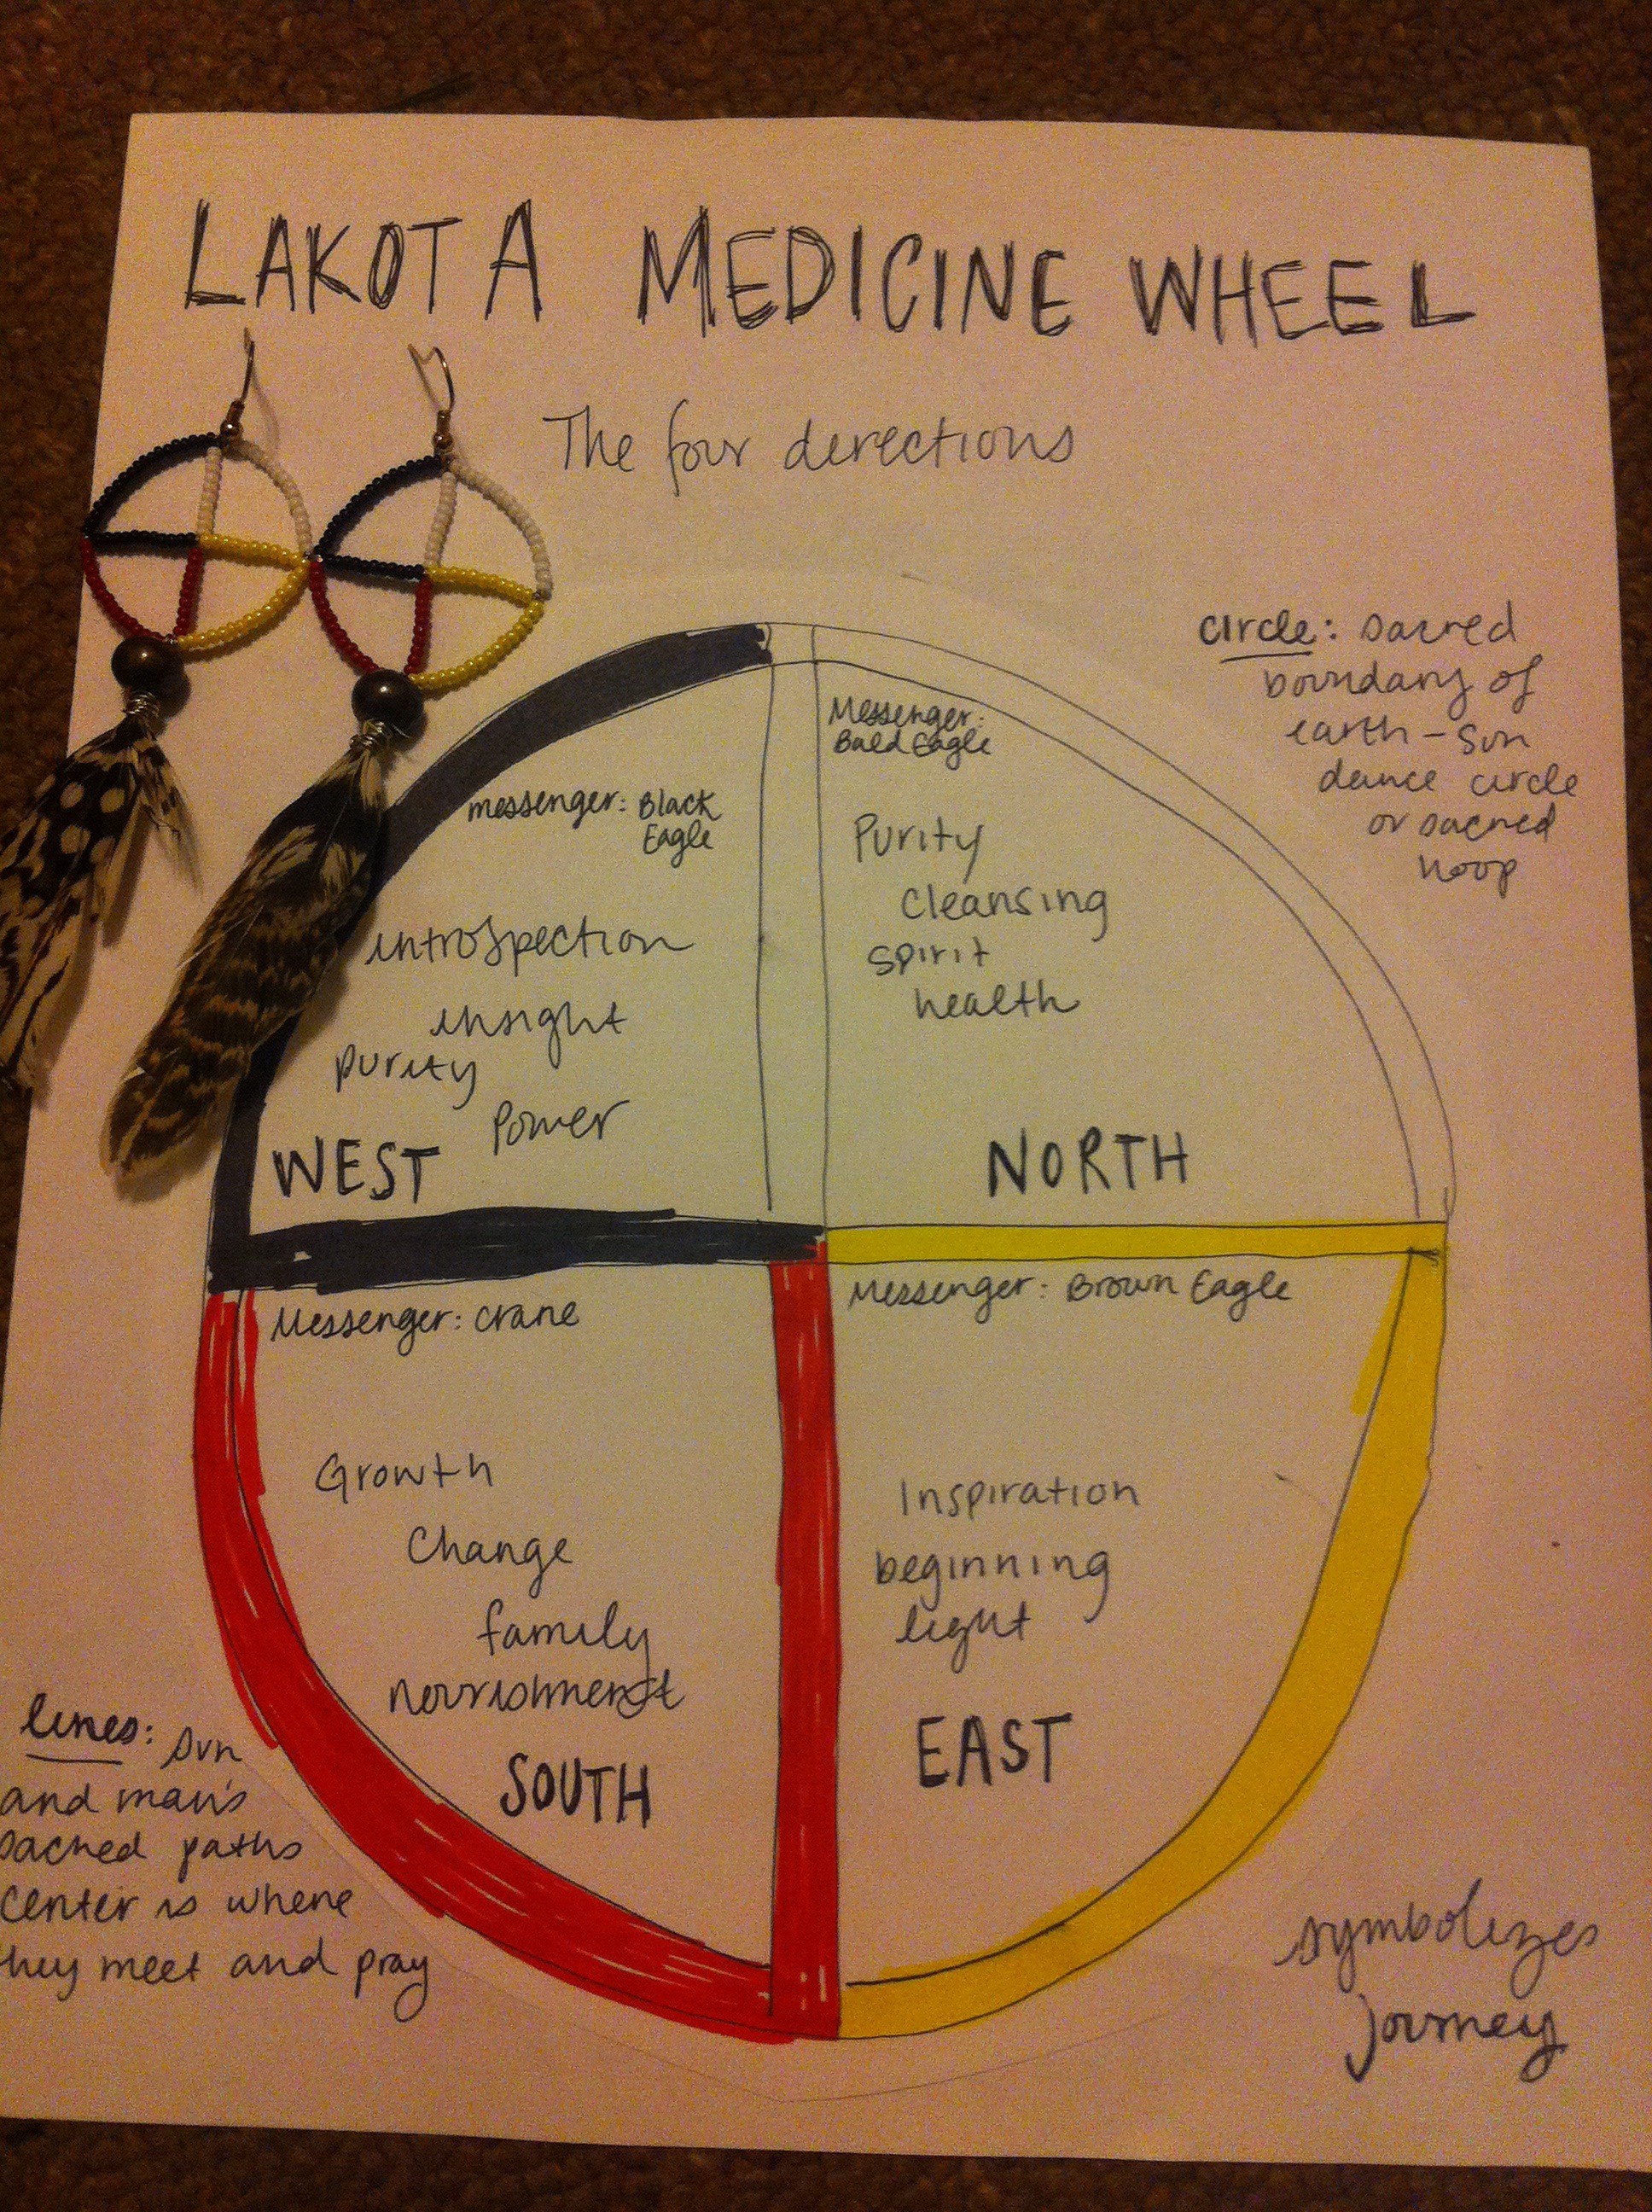 LAKOTA MEDICINE WHEEL
The four directions
Circle: sacred
boundary of
earth - sun
dance circle
or sacred
hoop
messenger: Black
Eagle
introspection
insight
purity
Power
WEST
Messenger:
Bald Eagle
Purity
Cleansing
spirit
health
NORTH
Messenger: crane
Growth
Change
family
nourishment
SOUTH
Messenger: Brown Eagle
Inspiration
beginning
light
EAST
lines: sun
and man's
sacred paths
center is where
they meet and pray
symbolizes
journey